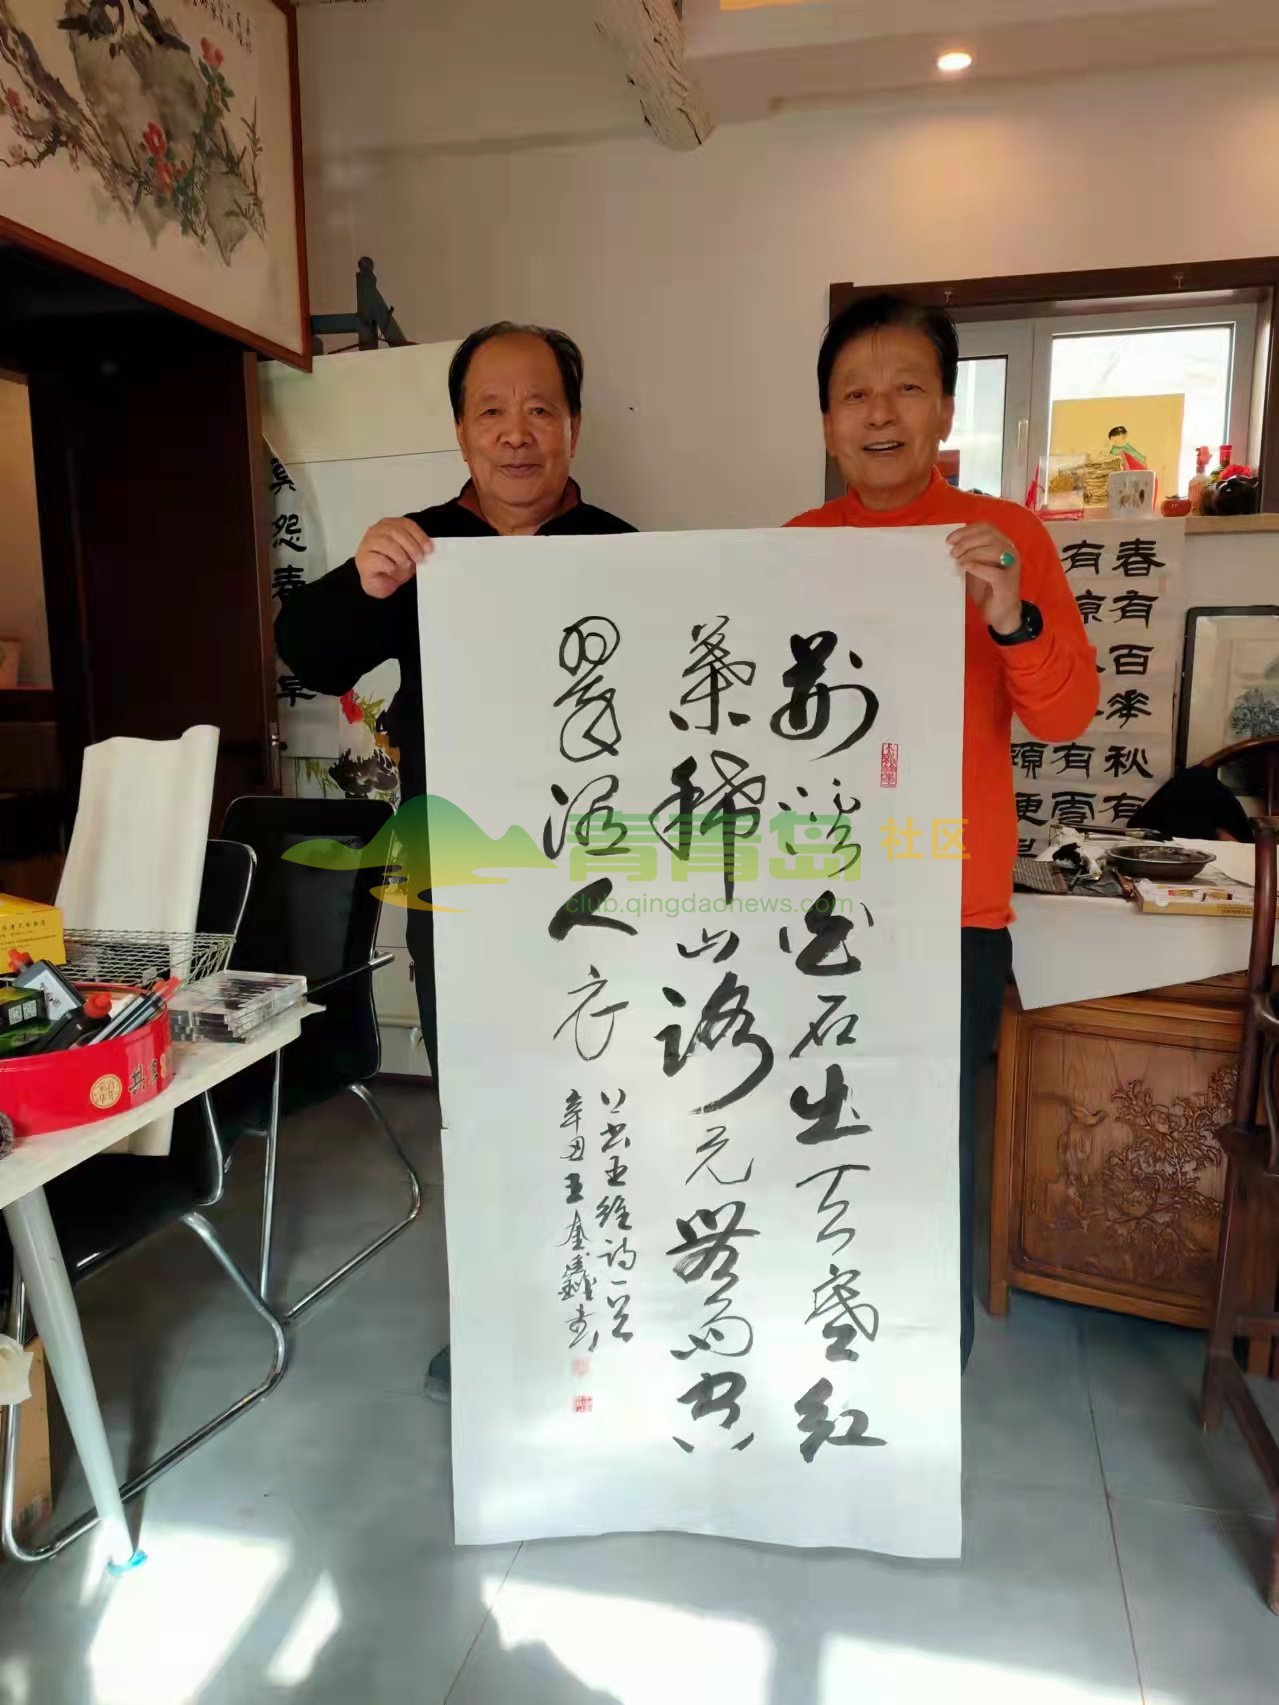 荆溪白石出天寒红
叶稀山路元无雨空
翠湿人衣
上书王维诗一首
辛丑王奎鑫书
青青岛社区
club.qingdaonews.com
春有百花秋有
有凉
頭有雪
便是
莫怨春
早